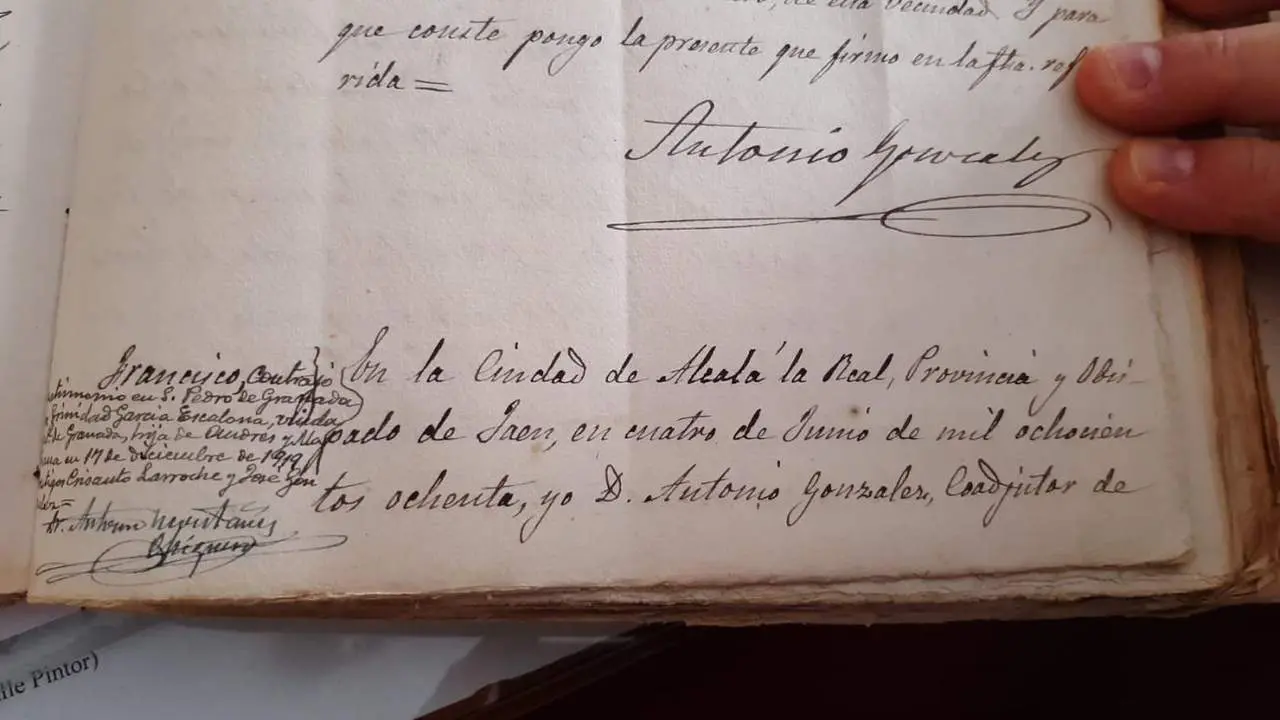 de esta Vecindad Y para
que conste pongo la presente que firmo en la fha. ref
rida =
Antonio Gonzalez
Francisco, contrajo
timonio en S. Pedro de Granada
Trinidad Garcia Escalona, viuda
de Granada, hija de Andres y Ma
en 17 de diciembre de 1919
tigos Crisanto Larroche y José Gon
D. Antonio
En la Ciudad de Alcalá la Real, Provincia y Obis-
pado de Jaen, en cuatro de Junio de mil ochocien
tos ochenta, yo D. Antonio Gonzalez, Coadjutor de
lle Pintor)